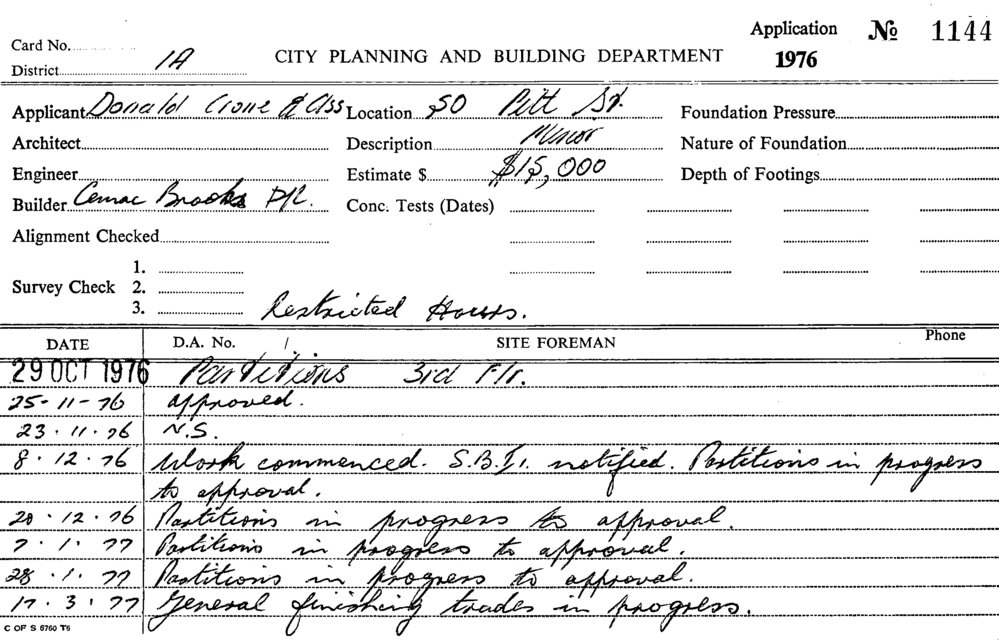 Application № 1144
Card No.
District 1A CITY PLANNING AND BUILDING DEPARTMENT 1976
Applicant Donald Crone & Ass Location 50 Pitt St. Foundation Pressure
Architect Description Minor Nature of Foundation
Engineer Estimate $ $15,000 Depth of Footings
Builder Cemac Brooks P/L. Conc. Tests (Dates)
Alignment Checked
1.
Survey Check 2.
3. Restricted Hours.
DATE D.A. No. /. SITE FOREMAN Phone
29 OCT 1976 Partitions 3rd Flr.
25-11-76 approved.
23.11.76 N.S.
8.12.76 Work commenced. S.B.I. notified. Partitions in progress
to approval.
20.12.76 Partitions in progress to approval.
7.1.77 Partitions in progress to approval.
28.1.77 Partitions in progress to approval.
17.3.77 General finishing trades in progress.
C OF S 8760 T6